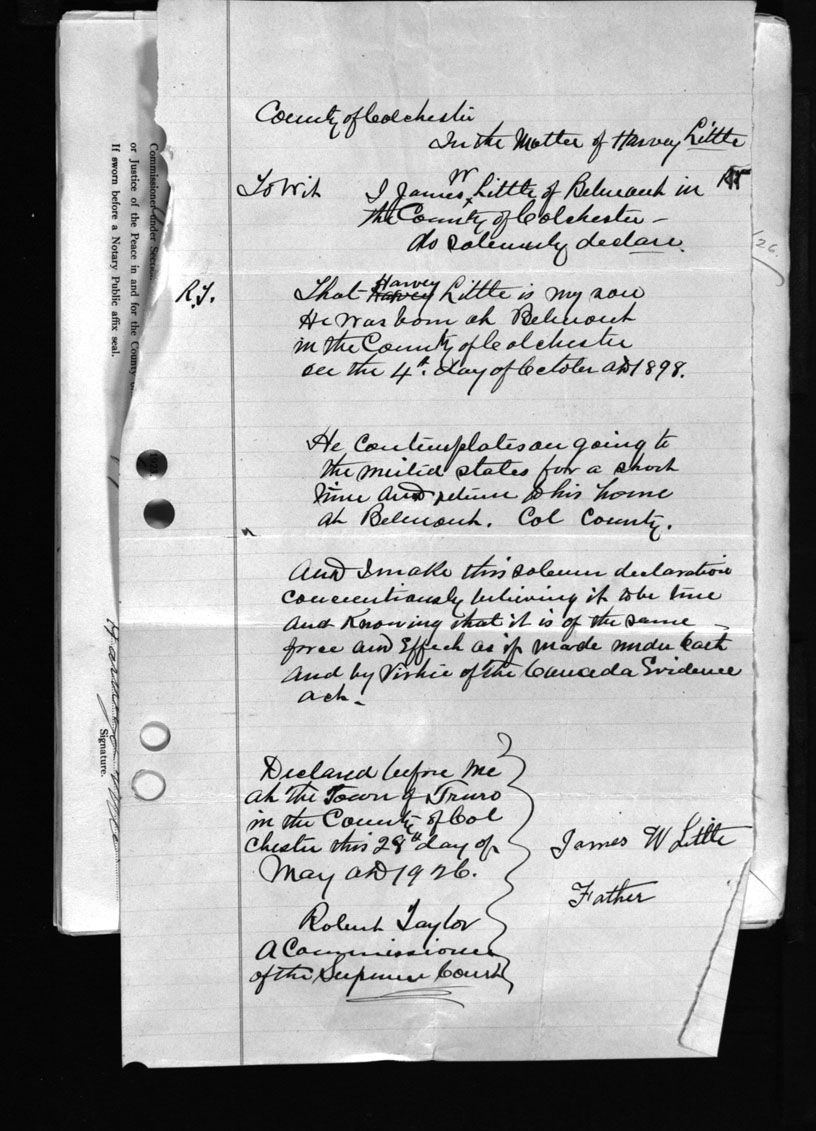 County of Colchester
In the Matter of Harvey Little
To Wit I James W Little of Belmont in
the County of Colchester –
do solemnly declare.
R.T. That Harvey Harvey Little is my son
He was born at Belmont
in the County of Colchester
on the 4th day of October AD 1898.
He Contemplates on going to
the united states for a short
time and return to his home
at Belmont. Col County.
And I make this solemn declaration
concientiously believing it to be true
and Knowing that it is of the same –
force and Effect as if made under Oath
and by Virtue of the Canada Evidence
act –
Declared before me
at the Town of Truro
in the County of Col
chester this 28th day of
May AD 1926.
Robert Taylor
A Commissioner
of the Supreme Court
James W Little
Father
Commissioner under Section
or Justice of the Peace in and for the County of
If sworn before a Notary Public affix seal.
Signature.
26.